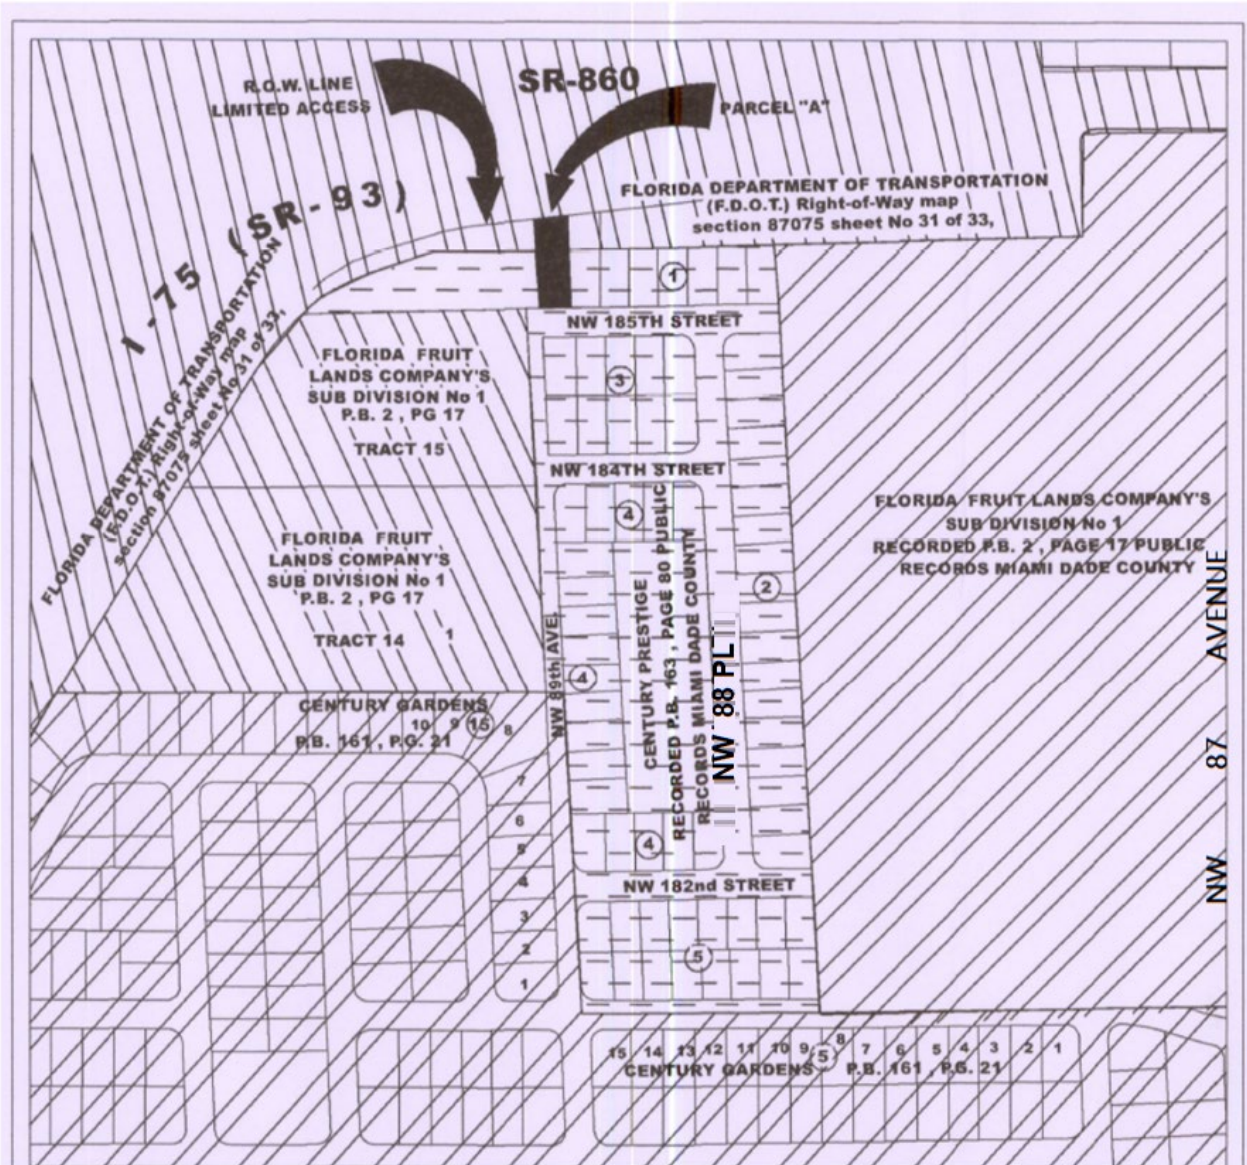 SR-860
R.O.W. LINE
LIMITED ACCESS
PARCEL "A"
FLORIDA DEPARTMENT OF TRANSPORTATION
(F.D.O.T.) Right-of-Way map
section 87075 sheet No 31 of 33,
I-75 (SR-93)
FLORIDA DEPARTMENT OF TRANSPORTATION
(F.D.O.T.) Right-of-Way map
section 87075 sheet No 31 of 33,
1
NW 185TH STREET
FLORIDA FRUIT
LANDS COMPANY'S
SUB DIVISION No 1
P.B. 2 , PG 17
TRACT 15
3
NW 184TH STREET
4
FLORIDA FRUIT LANDS COMPANY'S
SUB DIVISION No 1
RECORDED P.B. 2 , PAGE 17 PUBLIC
RECORDS MIAMI DADE COUNTY
FLORIDA FRUIT
LANDS COMPANY'S
SUB DIVISION No 1
P.B. 2 , PG 17
TRACT 14
1
2
NW 89th AVE.
4
CENTURY PRESTIGE
RECORDED P.B. 163 , PAGE 80 PUBLIC
RECORDS MIAMI DADE COUNTY
NW 88 PL
NW 87 AVENUE
CENTURY GARDENS
10 9 15 8
P.B. 161 , P.G. 21
7
6
5
4
3
2
1
4
NW 182nd STREET
5
15 14 13 12 11 10 9 5 8 7 6 5 4 3 2 1
CENTURY GARDENS P.B. 161 , P.G. 21